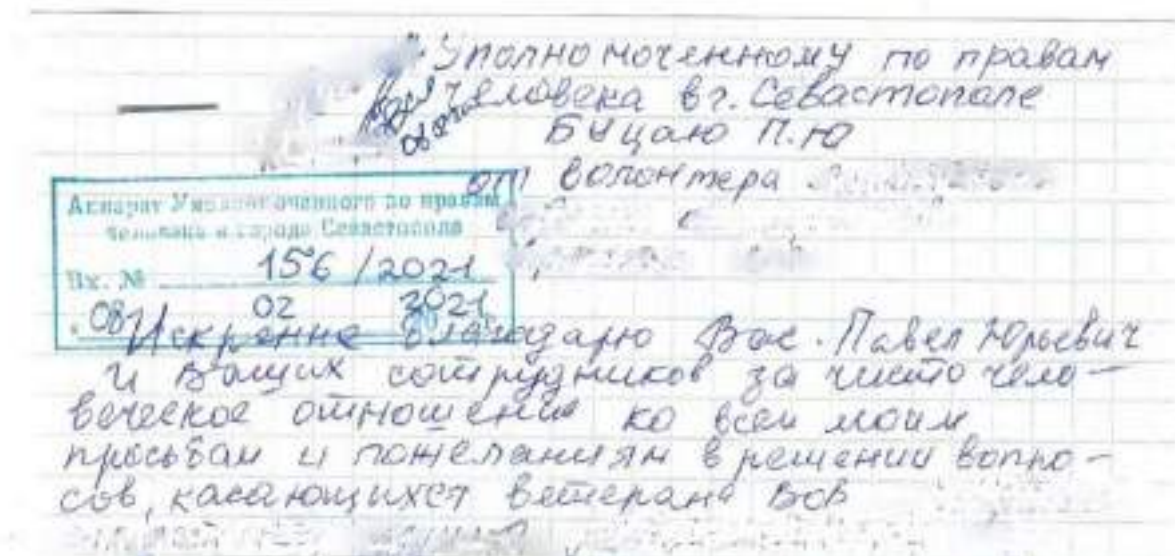 Уполномоченному по правам
человека в г. Севастополе
Буцаю П.Ю
от волонтера
Аппарат Уполномоченного по правам
человека в городе Севастополе
Вх. № 156/2021
08 02 2021
Искренне благодарю Вас. Павел Юрьевич
и Ваших сотрудников за чисто чело-
веческое отношение ко всем моим
просьбам и пожеланиям в решении вопро-
сов, касающихся ветерана ВОВ